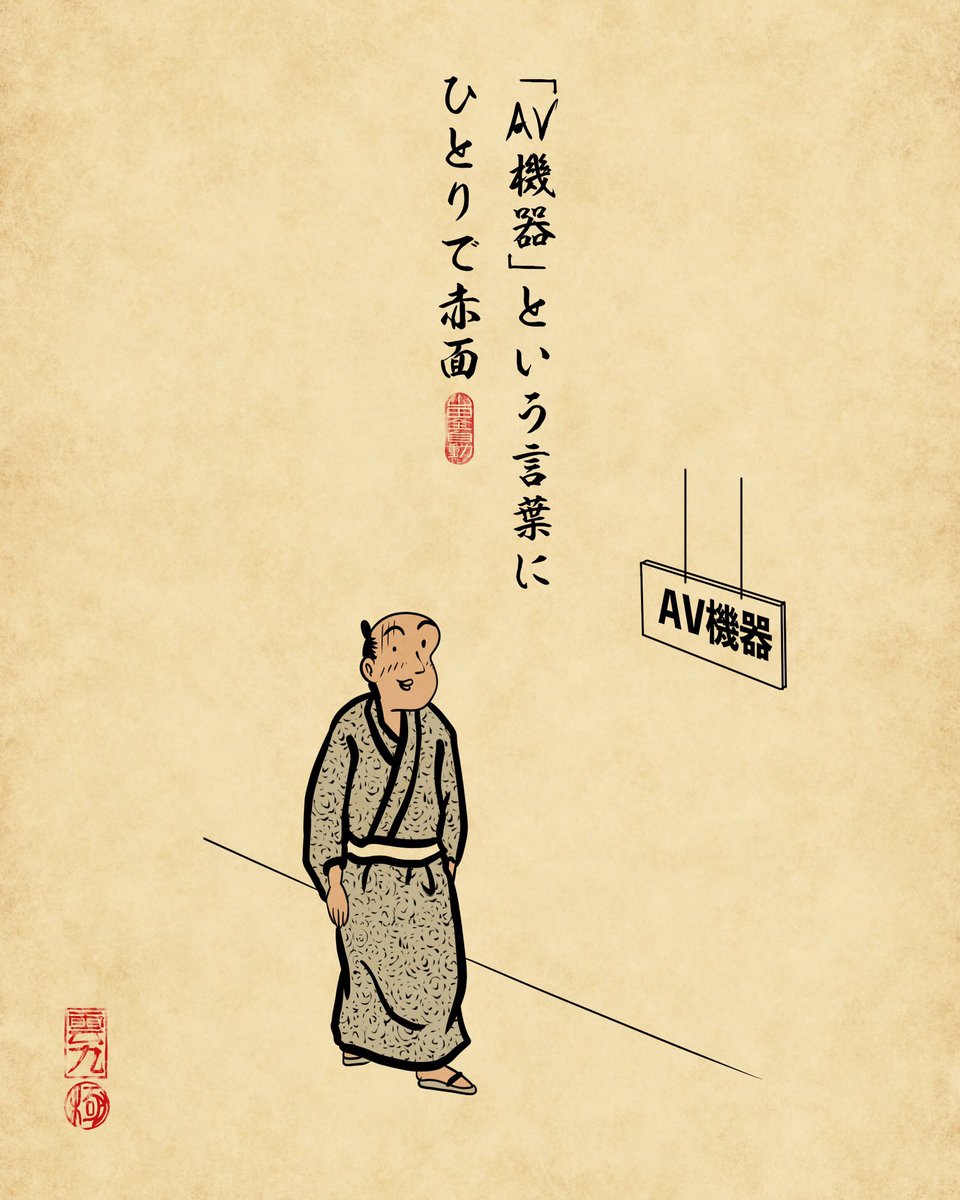 「AV機器」という言葉に
ひとりで赤面
AV機器